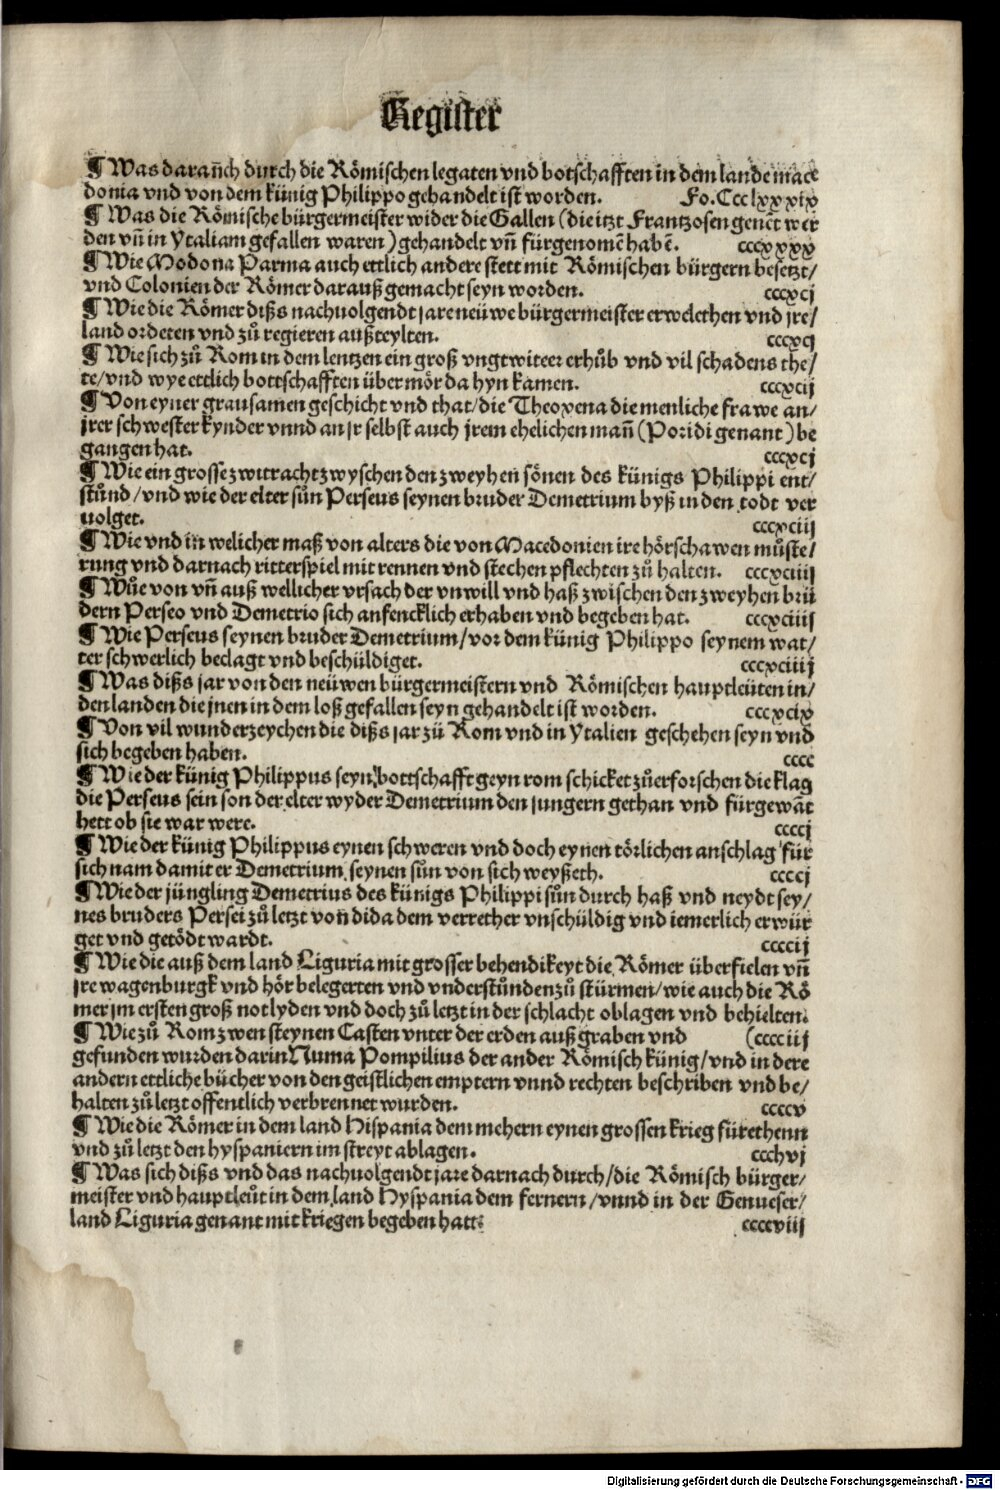 Register
¶ Was darañch durch die Römischen legaten vnd botschafften in dem lande mace
donia vnd von dem künig Philippo gehandelt ist worden. Fo. Ccclxxxix
¶ Was die Römische bürgermeister wider die Gallen (die itzt Frantzosen genēt wer
den vñ in Ytaliam gefallen waren) gehandelt vñ fürgenomē habē. cccxxxx
¶ Wie Modona Parma auch ettlich andere stett mit Römischen bürgern besetzt/
vnd Colonien der Römer darauß gemacht seyn worden. cccxcj
¶ Wie die Römer dißs nachuolgendt jare neüwe bürgermeister erwelethen vnd jre/
land ordeten vnd zů regieren außteylten. cccxcj
¶ Wie sich zů Rom in dem lentzen ein groß vngtwiteer erhůb vnd vil schadens the/
te/vnd wye ettlich bottschafften über mör da hyn kamen. cccxcij
¶ Von eyner grausamen geschicht vnd that/die Theoxena die menliche frawe an/
jrer schwester kynder vnnd an jr selbst auch jrem ehelichen mañ (Poridi genant) be
gangen hat. cccxcj
¶ Wie ein grosse zwitracht zwyschen den zweyhen sönen des künigs Philippi ent/
stůnd/vnd wie der elter sůn Perseus seynen bruder Demetrium byß in den todt ver
uolget. cccxciij
¶ Wie vnd in welicher maß von alters die von Macedonien ire hörschawen můste/
rung vnd darnach ritterspiel mit rennen vnd stechen pflechten zů halten. cccxciiij
¶ Wůe von vñ auß wellicher vrsach der vnwill vnd haß zwischen den zweyhen brü
dern Perseo vnd Demetrio sich anfencklich erhaben vnd begeben hat. cccxciiij
¶ Wie Perseus seynen bruder Demetrium/vor dem künig Philippo seynem wat/
ter schwerlich beclagt vnd beschüldiget. cccxciiij
¶ Was dißs jar von den neüwen bürgermeistern vnd Römischen hauptleüten in/
den landen die jnen in dem loß gefallen seyn gehandelt ist worden. cccxcix
¶ Von vil wunderzeychen die dißs jar zü Rom vnd in Ytalien geschehen seyn vnd
sich begeben haben. cccc
¶ Wie der künig Philippus seyn bottschafft geyn rom schicket zůerforschen die klag
die Perseus sein son der elter wyder Demetrium den jungern gethan vnd fürgewāt
hett ob sie war were. ccccj
¶ Wie der künig Philippus eynen schweren vnd doch eynen törlichen anschlag für
sich nam damit er Demetrium seynen sůn von sich weyßeth. ccccj
¶ Wie der jüngling Demetrius des künigs Philippi sůn durch haß vnd neydt sey/
nes bruders Persei zů letzt von dida dem verrether vnschüldig vnd iemerlich erwür
get vnd getödt wardt. ccccij
¶ Wie die auß dem land Liguria mit grosser behendikeyt die Römer überfielen vñ
jre wagenburgk vnd hör belegerten vnd vnderstůnden zů stürmen/wie auch die Rö
mer jm ersten groß not lyden vnd doch zů letzt in der schlacht oblagen vnd behielten.
¶ Wie zů Rom zwen steynen Casten vnter der erden auß graben vnd (cccciij
gefunden wurden darin Numa Pompilius der ander Römisch künig/vnd in dere
andern ettliche bücher von den geistlichen emptern vnnd rechten beschriben vnd be/
halten zů letzt offentlich verbrennet wurden. ccccv
¶ Wie die Römer in dem land Hispania dem mehern eynen grossen krieg fürethenn
vnd zů letzt den hyspaniern im streyt ablagen. ccchvj
¶ Was sich dißs vnd das nachuolgendt jare darnach durch/die Römisch bürger/
meister vnd hauptleüt in dem land Hyspania dem fernern/vnnd in der Genueser/
land Liguria genant mit kriegen begeben hatt: ccccviij
Digitalisierung gefördert durch die Deutsche Forschungsgemeinschaft - DFG